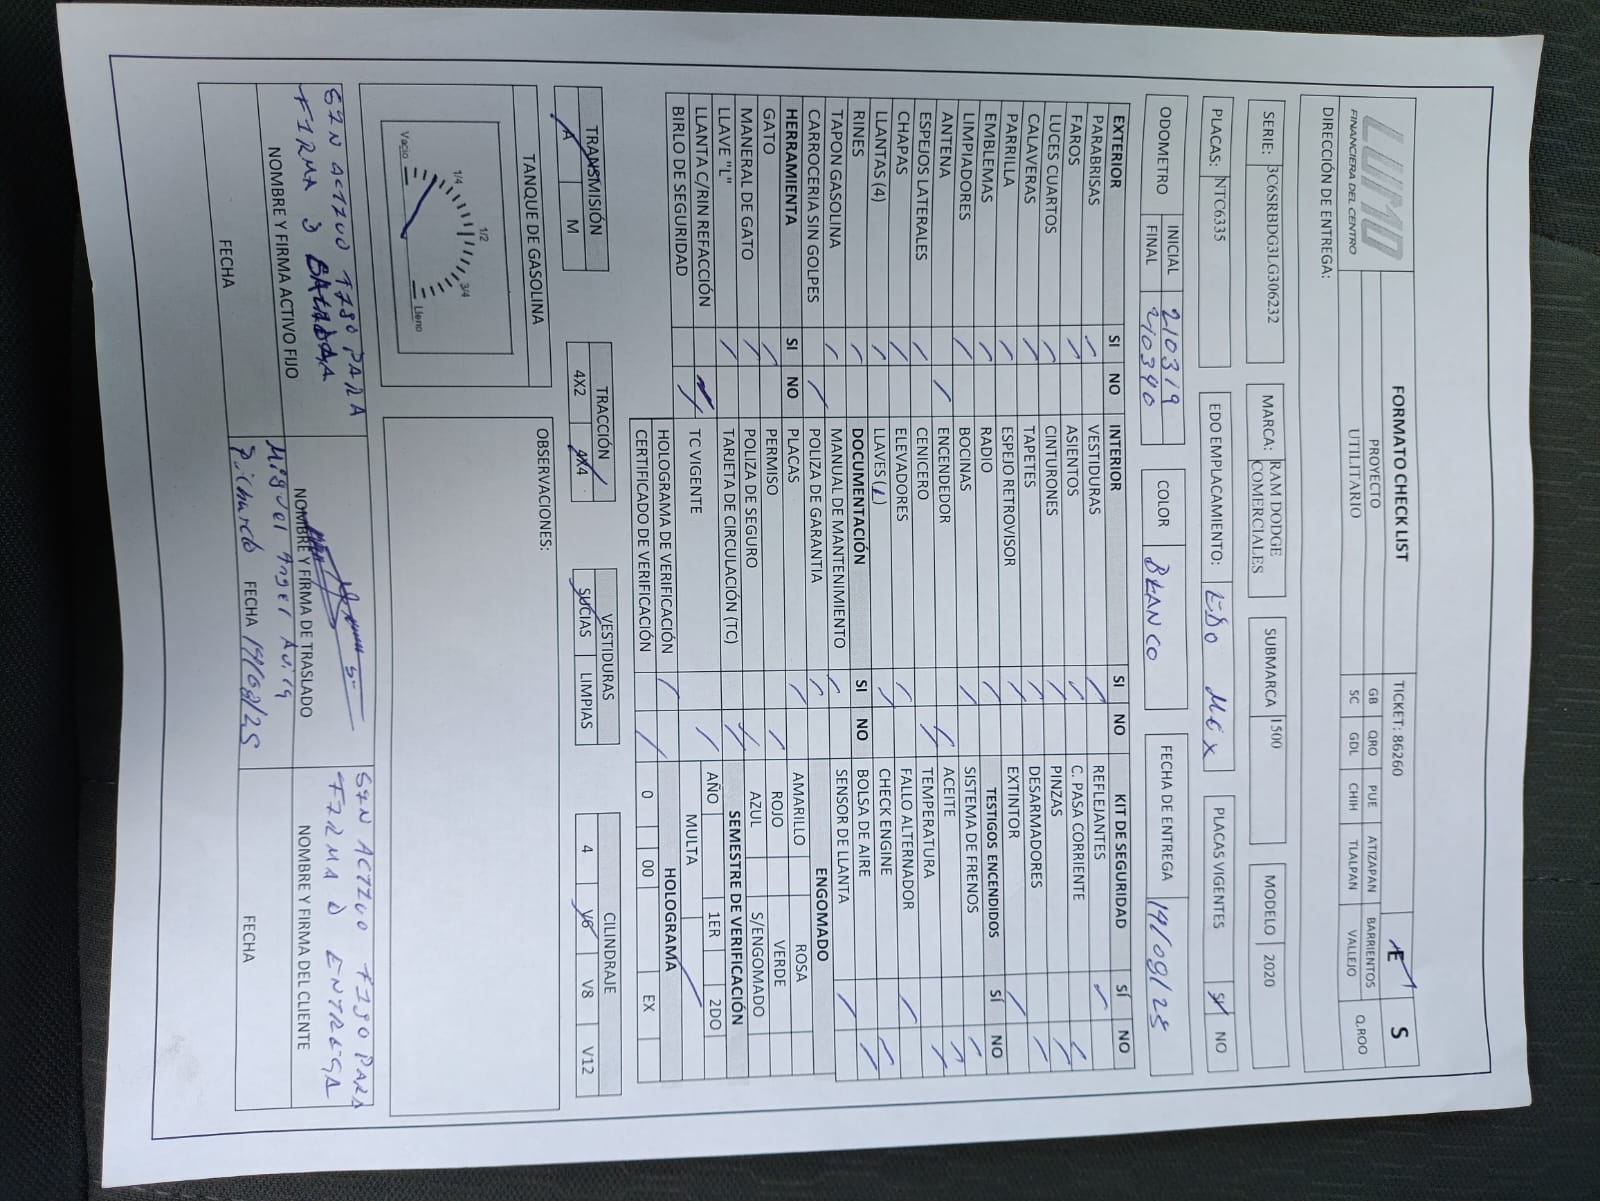 LUMO
FINANCIERA DEL CENTRO
FORMATO CHECK LIST
TICKET: 86260
E S
PROYECTO
UTILITARIO
GB QRO PUE ATIZAPAN BARRIENTOS Q.ROO
SC GDL CHIH TLALPAN VALLEJO
DIRECCIÓN DE ENTREGA:
SERIE: 3C6SRBDG3LG306232 MARCA: RAM DODGE COMERCIALES SUBMARCA 1500 MODELO 2020
PLACAS: NTC6335 EDO EMPLACAMIENTO: EDO MEX PLACAS VIGENTES SI NO
ODOMETRO INICIAL 210319 COLOR BLANCO FECHA DE ENTREGA 19/08/25
FINAL 210340
EXTERIOR SI NO
PARABRISAS
FAROS
LUCES CUARTOS
CALAVERAS
PARRILLA
EMBLEMAS
LIMPIADORES
ANTENA
ESPEJOS LATERALES
CHAPAS
LLANTAS (4)
RINES
TAPON GASOLINA
CARROCERIA SIN GOLPES
HERRAMIENTA SI NO
GATO
MANERAL DE GATO
LLAVE "L"
LLANTA C/RIN REFACCIÓN
BIRLO DE SEGURIDAD
INTERIOR SI NO
VESTIDURAS
ASIENTOS
CINTURONES
TAPETES
ESPEJO RETROVISOR
RADIO
BOCINAS
ENCENDEDOR
CENICERO
ELEVADORES
LLAVES (1)
DOCUMENTACIÓN SI NO
MANUAL DE MANTENIMIENTO
POLIZA DE GARANTIA
PLACAS
PERMISO
POLIZA DE SEGURO
TARJETA DE CIRCULACIÓN (TC)
TC VIGENTE
HOLOGRAMA DE VERIFICACIÓN
CERTIFICADO DE VERIFICACIÓN
KIT DE SEGURIDAD SÍ NO
REFLEJANTES
C. PASA CORRIENTE
PINZAS
DESARMADORES
EXTINTOR
TESTIGOS ENCENDIDOS SÍ NO
SISTEMA DE FRENOS
ACEITE
TEMPERATURA
FALLO ALTERNADOR
CHECK ENGINE
BOLSA DE AIRE
SENSOR DE LLANTA
ENGOMADO
AMARILLO ROSA
ROJO VERDE
AZUL S/ENGOMADO
SEMESTRE DE VERIFICACIÓN
AÑO 1ER 2DO
MULTA
HOLOGRAMA
0 00 EX
TRANSMISIÓN
A M
TRACCIÓN
4X2 4X4
VESTIDURAS
SUCIAS LIMPIAS
CILINDRAJE
4 V6 V8 V12
TANQUE DE GASOLINA
Vacio 1/4 1/2 3/4 Lleno
OBSERVACIONES:
SIN ACTIVO FIJO PARA
FIRMA
NOMBRE Y FIRMA ACTIVO FIJO
FECHA
NOMBRE Y FIRMA DE TRASLADO
Miguel Angel Avila
Pichardo FECHA 19/08/25
SIN ACTIVO FIJO PARA
FIRMA D ENTREGA
NOMBRE Y FIRMA DEL CLIENTE
FECHA